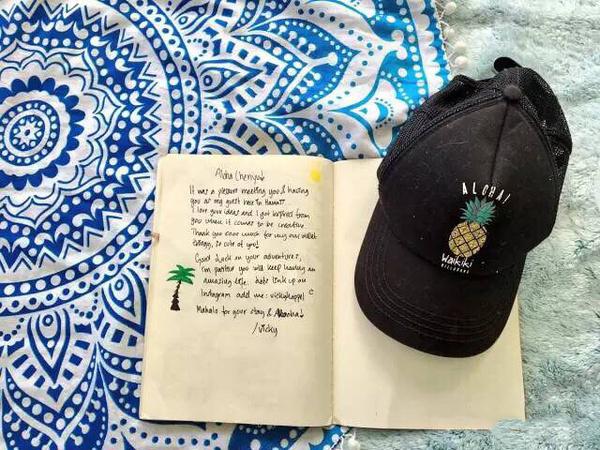 Aloha Chenyu!
It was a pleasure meeting you & having
you as my guest here in Hawaii.
I love your ideas and I got inspired from
you when it comes to be creative.
Thank you ever much for my own wallet
, so cute of you!
Good luck on your adventures,
I'm positive you will keep having an
amazing life. Lets link up on
Instagram add me:
Mahalo for your stay & Aloha!
/Vicky
ALOHA!
Waikiki
BILLABONG